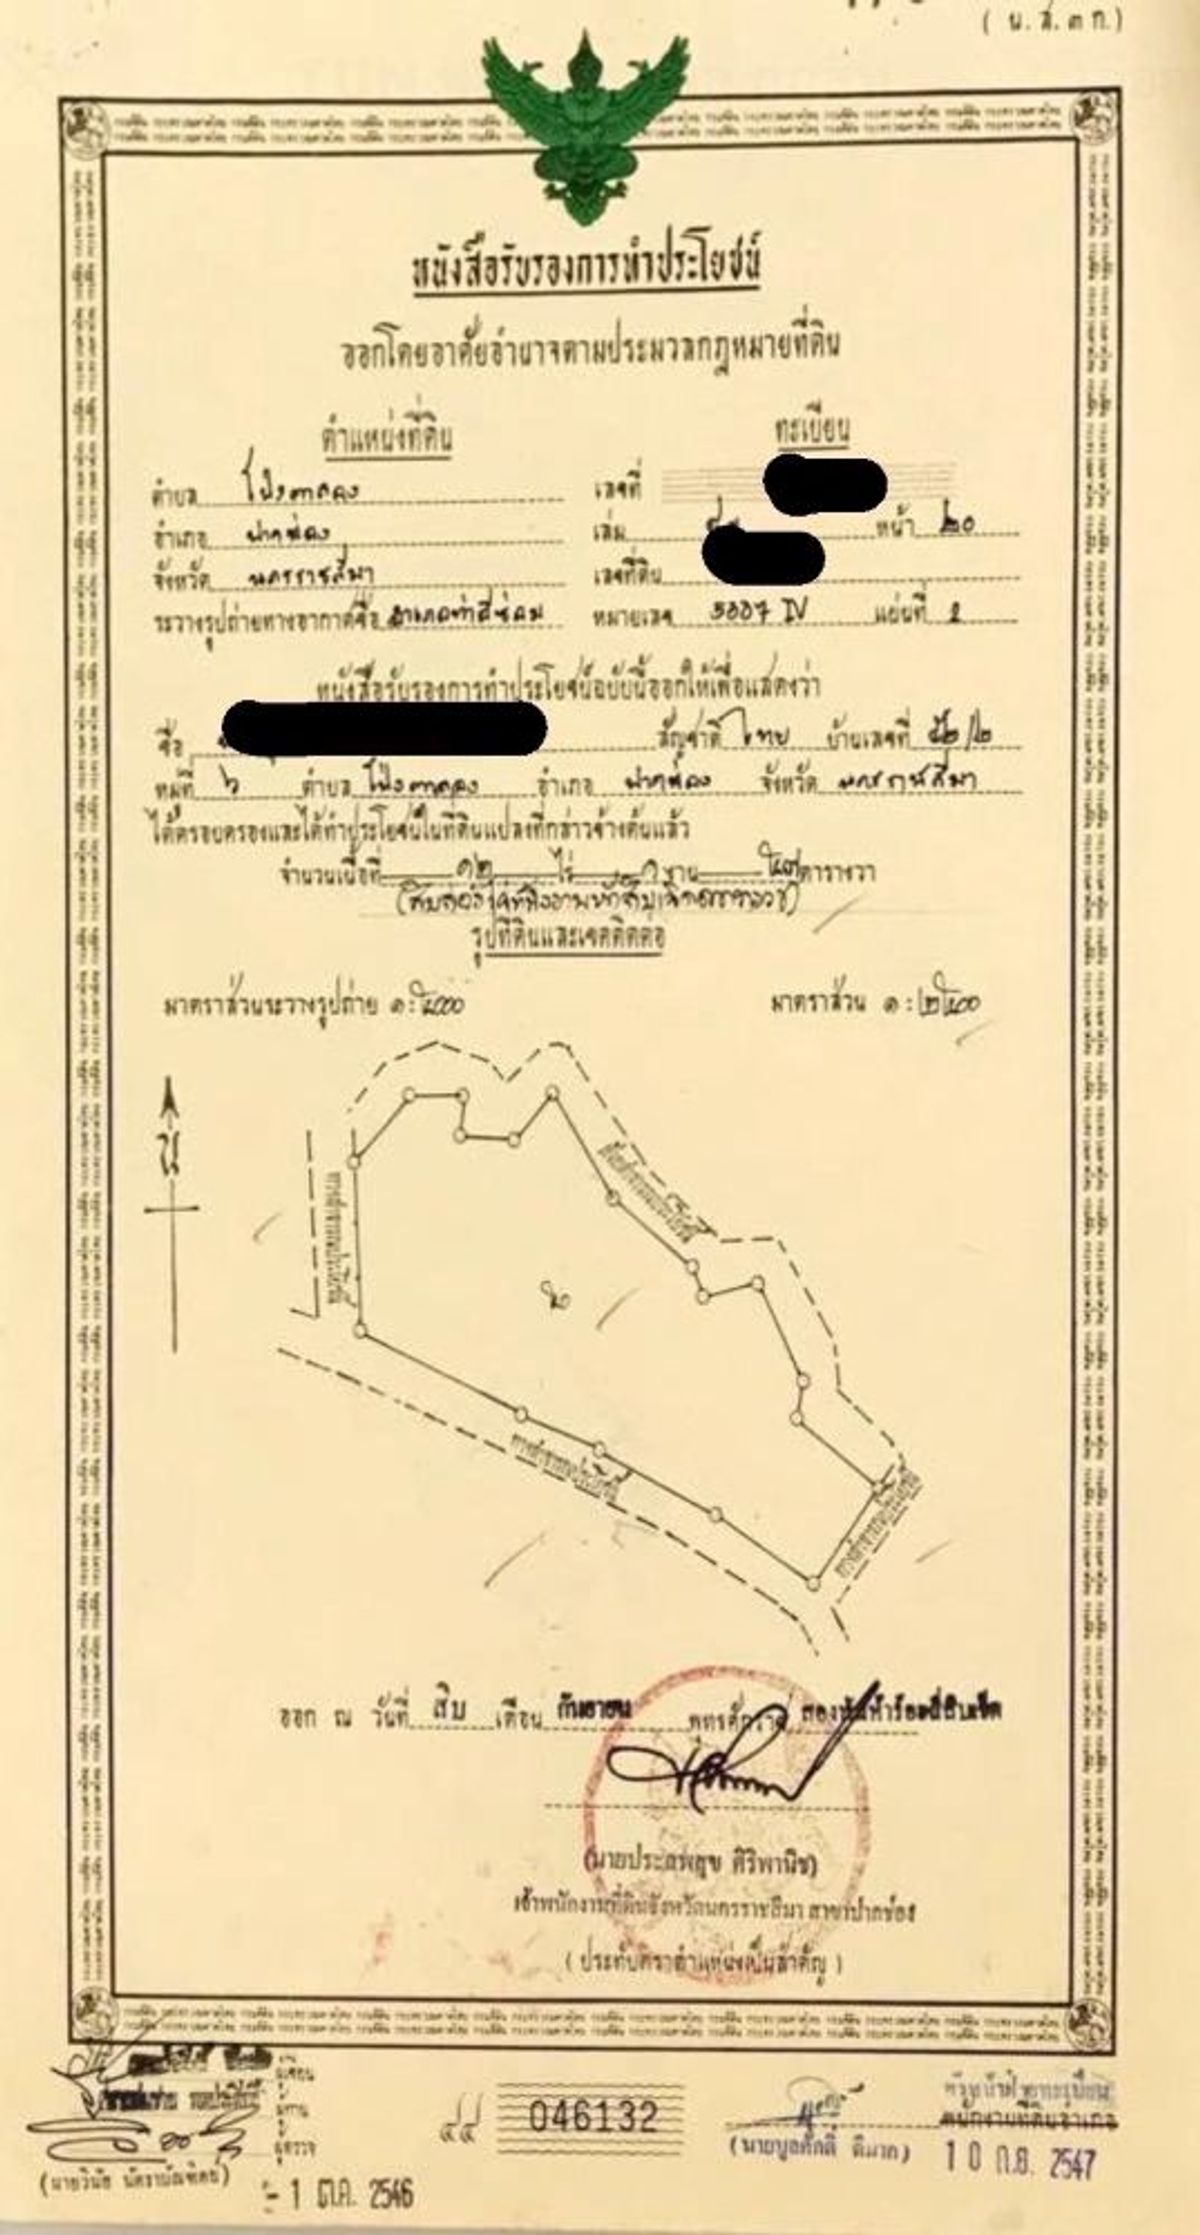 ( น.ส.๓ ก.)
หนังสือรับรองการทำประโยชน์
ออกโดยอาศัยอำนาจตามประมวลกฎหมายที่ดิน
ตำแหน่งที่ดิน ทะเบียน
ตำบล โป่งตาลอง เลขที่
อำเภอ ปากช่อง เล่ม หน้า ๒๐
จังหวัด นครราชสีมา เลขที่ดิน
ระวางรูปถ่ายทางอากาศชื่อ หมายเลข 5337 IV แผ่นที่
หนังสือรับรองการทำประโยชน์ฉบับนี้ออกให้เพื่อแสดงว่า
ชื่อ สัญชาติ ไทย บ้านเลขที่ ๕๒/๒
หมู่ที่ ๖ ตำบล โป่งตาลอง อำเภอ ปากช่อง จังหวัด นครราชสีมา
ได้ครอบครองและได้ทำประโยชน์ในที่ดินแปลงที่กล่าวข้างต้นแล้ว
จำนวนเนื้อที่ ๑๒ ไร่ ๑ งาน ๕๗ ตารางวา
(สิบสองไร่หนึ่งงานห้าสิบเจ็ดตารางวา)
รูปที่ดินและเขตติดต่อ
มาตราส่วนระวางรูปถ่าย ๑:๕๐๐๐ มาตราส่วน ๑:๒๕๐๐
น
ทางสาธารณประโยชน์
ทางสาธารณประโยชน์
ทางสาธารณประโยชน์
ออก ณ วันที่ สิบ เดือน กันยายน พุทธศักราช สองพันห้าร้อยสี่สิบเจ็ด
(นายประสพสุข ศิริพานิช)
เจ้าพนักงานที่ดินจังหวัดนครราชสีมา สาขาปากช่อง
( ประทับตราตำแหน่งเป็นสำคัญ )
ผู้เขียน
ผู้ทาน
ผู้ตรวจ
๔๔ 046132
(นายบูลศักดิ์ ดีมาก)
หัวหน้าฝ่ายทะเบียน
พนักงานที่ดินอำเภอ
10 ก.ย. 2547
- 1 ต.ค. 2546